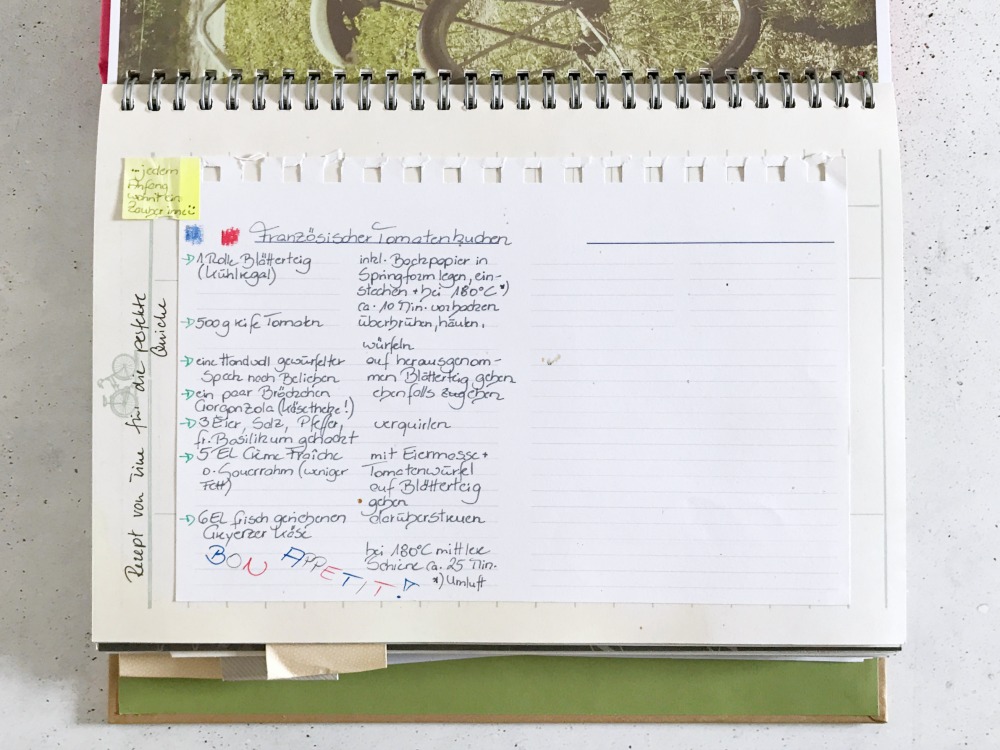 ...jedem
Anfang
wohnt ein
Zauber inne
Französischer Tomatenkuchen
1 Rolle Blätterteig
(Kühlregal)
inkl. Backpapier in
Springform legen, ein-
stechen + bei 180°C *)
ca. 10 Min. vorbacken
500g reife Tomaten
überbrühen, häuten,
würfeln
eine Handvoll gewürfelter
Speck nach Belieben
auf herausgenom-
men Blätterteig geben
ein paar Bröckchen
Gorgonzola (Käsetheke!)
ebenfalls zugeben
3 Eier, Salz, Pfeffer,
fr. Basilikum gehackt
verquirlen
5 EL Crème Fraîche
o. Sauerrahm (weniger
Fett)
mit Eiermasse +
Tomatenwürfel
auf Blätterteig
geben
6EL frisch geriebenen
Greyerzer Käse
darüberstreuen
bei 180°C mittlere
Schiene ca. 25 Min.
*) Umluft
BON APPETIT!
Rezept von Eine für die perfekte
Quiche